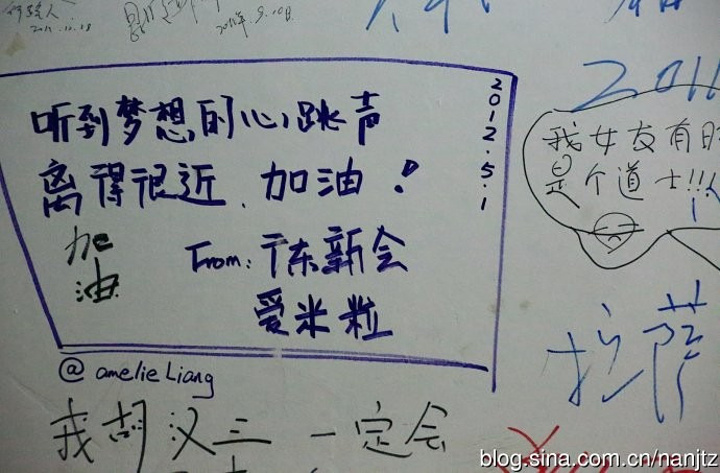 2011.9.10日
2011
听到梦想的心跳声
离得很近.加油!
2012.5.1
加
油
From:广东新会
爱米粒
@ amelie Liang
我女友有时
是个道士!!!
拉萨
我胡汉三一定会
blog.sina.com.cn/nanjtz